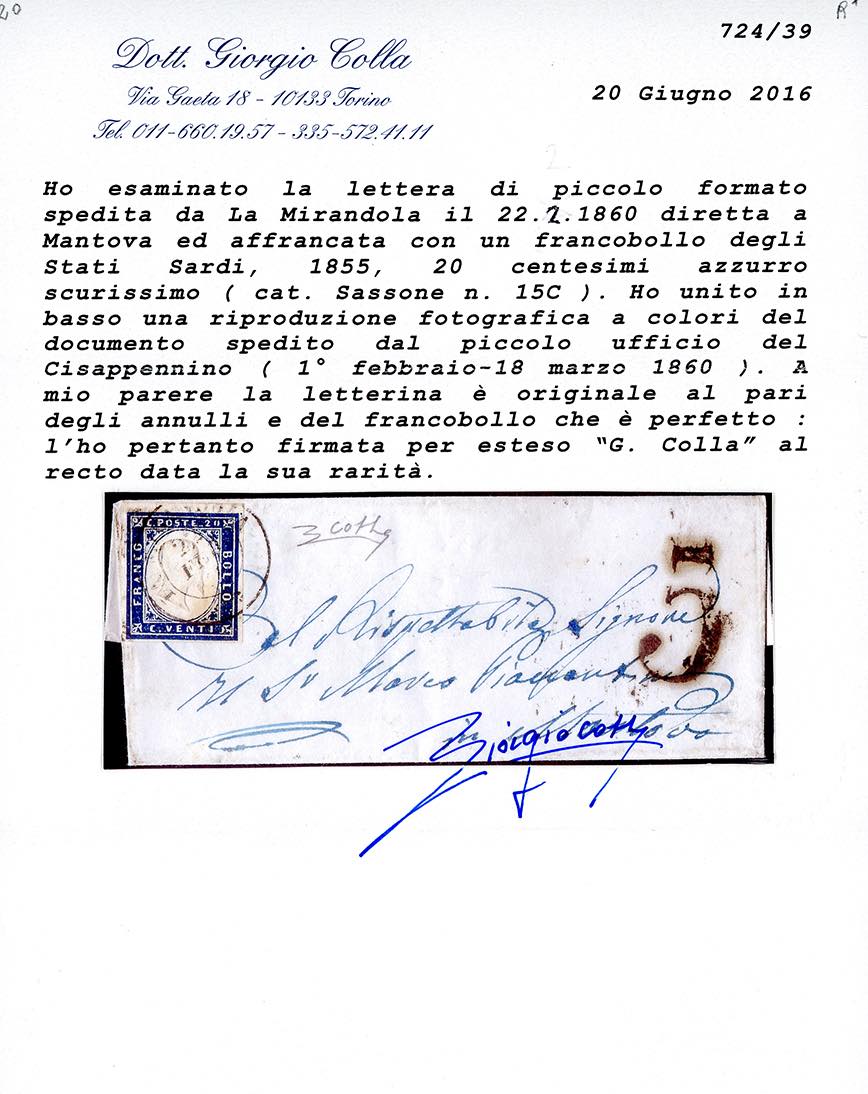 20
R1
724/39
Dott. Giorgio Colla
Via Gaeta 18 - 10133 Torino
20 Giugno 2016
Tel. 011-660.19.57 - 335-572.11.11
2
Ho esaminato la lettera di piccolo formato
spedita da La Mirandola il 22.2.1860 diretta a
Mantova ed affrancata con un francobollo degli
Stati Sardi, 1855, 20 centesimi azzurro
scurissimo ( cat. Sassone n. 15C ). Ho unito in
basso una riproduzione fotografica a colori del
documento spedito dal piccolo ufficio del
Cisappennino ( 1° febbraio-18 marzo 1860 ). A
mio parere la letterina è originale al pari
degli annulli e del francobollo che è perfetto :
l'ho pertanto firmata per esteso “G. Colla” al
recto data la sua rarità.
C. POSTE. 20
FRANCO
BOLLO
C. VENTI
G Colla
Al Rispettabile Signore
Sr Marco
Giorgio Colla